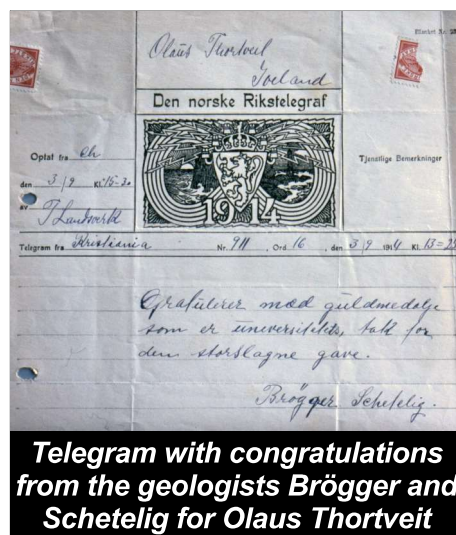 Blanket Nr.
Olaus Thortveit
Iveland
Den norske Rikstelegraf
Optat fra Ch
Tjenstlige Bemerkninger
den 3/9 Kl. 15-30
av
T Landsverk
1914
Telegram fra Kristiania Nr. 911, Ord 16, den 3/9 1914 Kl. 13=25
Gratulerer mæd guldmedalje
som er uneversitetets, takk for
den storslagne gave.
Brögger Schetelig.
Telegram with congratulations
from the geologists Brögger and
Schetelig for Olaus Thortveit